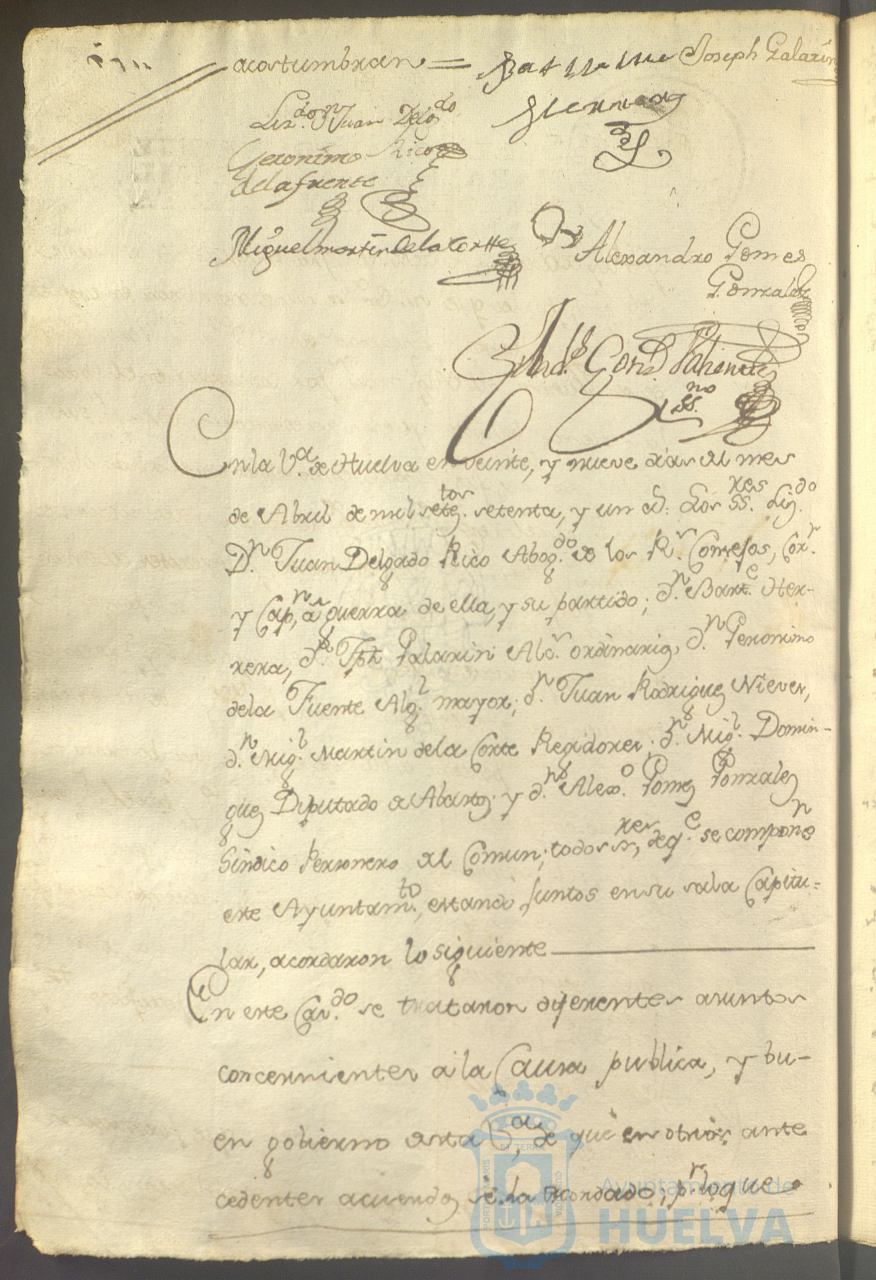 acostumbran = Joseph Galarin
Lizdo Dn Juan Delgdo
Geronimo Rico
delafuente
Miguel martin delaCortte
Alexandro Gomes
Gonzalez
ssno
Enla Va de Huelva en veinte, y nueve dias del mes
de Abril de mil setetos setenta, y un as. Los ssres Lizdo
Dn Juan Delgado Rico Abogdo de los Rs Consejos, Corr
y Capn a guerra de ella, y su partido; dn Barte Her-
rera, dn Jph Galarin Alcs ordinarios, dn Geronimo
dela Fuente Algl mayor; dn Juan Rodriguez Nieves,
dn Migl Martin dela Corte Regidores; dn Migl Domin-
guez Diputado de Abastos y dn Alexo Gomez Gonzalez
Sindico Personero del Comun; todos sres, de qe se compone
este Ayuntamto, estando juntos en su sala Capitu=
lar, acordaron lo siguiente
En este Cavdo se trataron diferentes asuntos
concernientes a la Causa publica, y bu-
en gobierno desta Va, de que en otros ante
cedentes acuerdos se ha acordado, pr loque
Ayuntamiento de
HUELVA